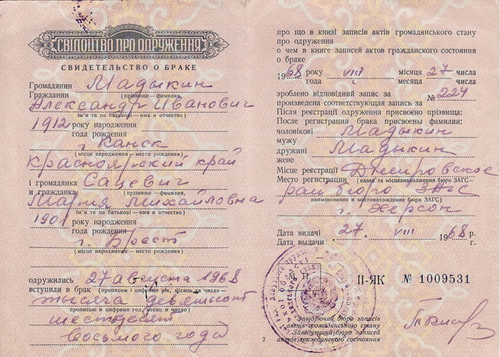 СВІДОЦТВО ПРО ОДРУЖЕННЯ
СВИДЕТЕЛЬСТВО О БРАКЕ
Громадянин Мадыкин
Гражданин
прізвище — фамилия,
Александр Иванович
ім'я та по батькові — имя и отчество
1912 року народження
года рождения
г. Канск
місце народження — место рождения
Красноярский край
і громадянка Сацевич
и гражданка
прізвище — фамилия,
Мария Михайловна
ім'я та по батькові — имя и отчество
1901 року народження
года рождения
г. Брест
місце народження — место рождения
одружились 27 августа 1968
вступили в брак
тысяча девятьсот
шестьдесят
восьмого года
про що в книзі записів актів громадянського стану
про одруження
о чем в книге записей актов гражданского состояния
о браке
1968 року VIII місяця 27 числа
года месяца числа
зроблено відповідний запис за № 224
произведена соответствующая запись за
Після реєстрації одруження присвоєно прізвища:
После регистрации брака присвоены фамилии:
чоловікові Мадыкин
мужу
дружині Мадыкин
жене
Місце реєстрації Днепровское
Место регистрации
райбюро ЗАГС
г. Херсон
Дата видачі 27. VIII 1968 р.
Дата выдачи г.
II-ЯК № 1009531
Завідуючий бюро записів
актів громадянського стану
Заведующий бюро записей
актов гражданского состояния
2